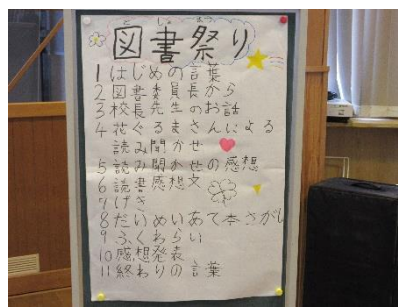 としょまつ
図書祭り
1 はじめの言葉
2 図書委員長から
3 校長先生のお話
4 花ぐるまさんによる
読み聞かせ
5 読み聞かせの感想
6 読書感想文
7 げき
8 だいめいあて本さがし
9 ふくわらい
10 感想発表
11 終わりの言葉